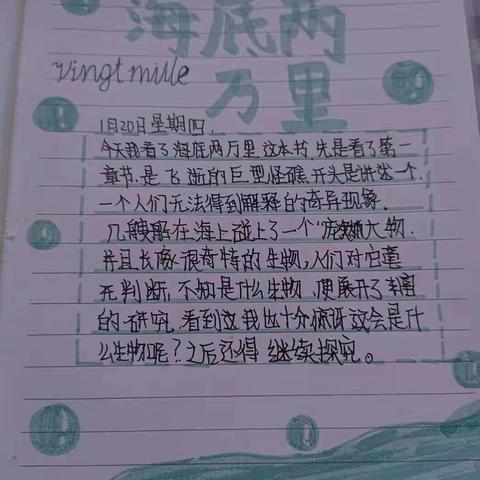 海底两
万里
Vingt mille
1月20日星期四.
今天我看了海底两万里这本书,先是看了第一
章节.是飞逝的巨型怪礁.开头是讲述一个.
一个人们无法得到解释的奇异现象.
几艘船在海上碰上了一个"庞然大物.
并且长啄很奇特的生物,人们对它毫
无判断,不知是什么生物 便展开了
的研究.看到这我也十分惊讶这会是什
么生物呢?之后还得 继续探究。